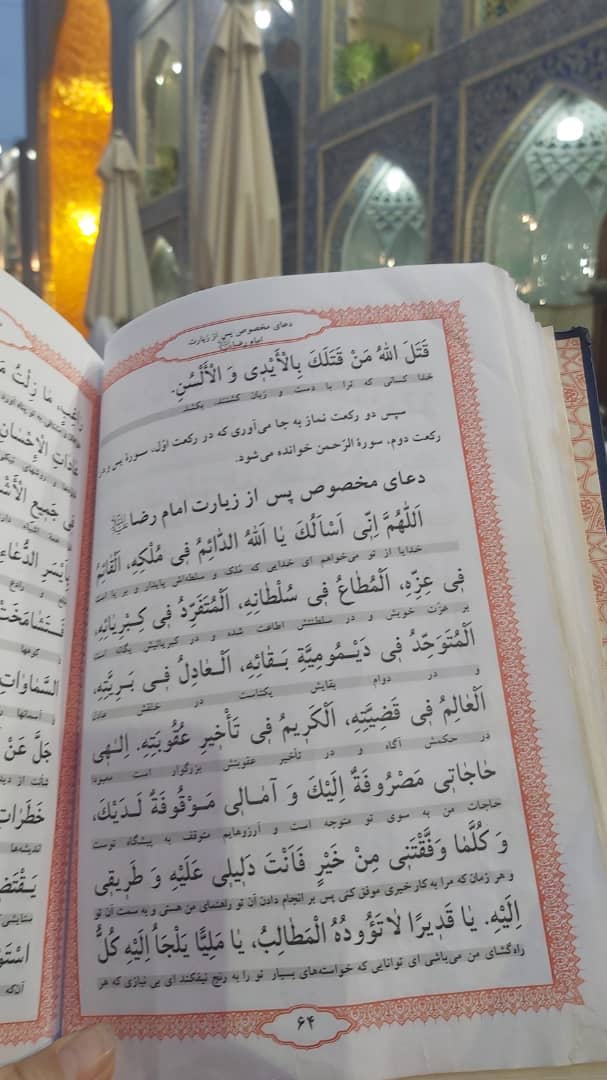 دعای مخصوص پس از زیارت
امام رضا
قَتَلَ اللّٰهُ مَنْ قَتَلَكَ بِالْأَيْدِی وَ الْأَلْسُنِ.
خدا کسانی که ترا با دست و زبان کشتند، بکشد
سپس دو رکعت نماز به جا می‌آوری که در رکعت اوّل، سورهٔ یس و در
رکعت دوم، سورهٔ الرّحمن خوانده می‌شود.
دعای مخصوص پس از زیارت امام رضا
اَللّٰهُمَّ اِنّٖی اَسْاَلُكَ یٰا اَللّٰهُ الدّٰائِمُ فٖی مُلْكِهِ، اَلْقٰائِمُ
خدایا از تو می‌خواهم ای خدایی که ملک و سلطه‌اش پایدار و بر پا است
فٖی عِزِّهِ، اَلْمُطٰاعُ فٖی سُلْطٰانِهِ، اَلْمُتَفَرِّدُ فٖی كِبْرِیٰائِهِ،
بر عزّت خویش و در سلطنتش اطاعت شده و در کبریائیش یگانه است
اَلْمُتَوَحِّدُ فٖی دَیْمُومِیَّةِ بَقٰائِهِ، اَلْعٰادِلُ فٖی بَرِیَّتِهِ،
و در دوام بقایش یکتاست در خلقش عادل
اَلْعٰالِمُ فٖی قَضِیَّتِهِ، اَلْكَرٖیمُ فٖی تَأْخٖیرِ عُقُوبَتِهِ. اِلٰهٖی
در حکمش آگاه و در تأخیر عقوبتش بزرگوار است معبودا
حٰاجٰاتٖی مَصْرُوفَةٌ اِلَیْكَ وَ آمٰالٖی مَوْقُوفَةٌ لَدَیْكَ،
حاجات من به سوی تو متوجه است و آرزوهایم متوقف به پیشگاه توست
وَ كُلَّمٰا وَفَّقْتَنٖی مِنْ خَیْرٍ فَاَنْتَ دَلٖیلٖی عَلَیْهِ وَ طَرٖیقٖی
و هر زمان که مرا به کار خیری موفق کنی پس بر انجام دادن آن تو راهنمای من هستی و به سمت آن تو
اِلَیْهِ. یٰا قَدٖیرًا لٰا تَؤُودُهُ الْمَطٰالِبُ، یٰا مَلِیًّا یَلْجَاُ اِلَیْهِ كُلُّ
راه‌گشای من می‌باشی ای توانایی که خواسته‌های بسیار تو را به رنج نیفکند ای بی نیازی که هر
۶۴